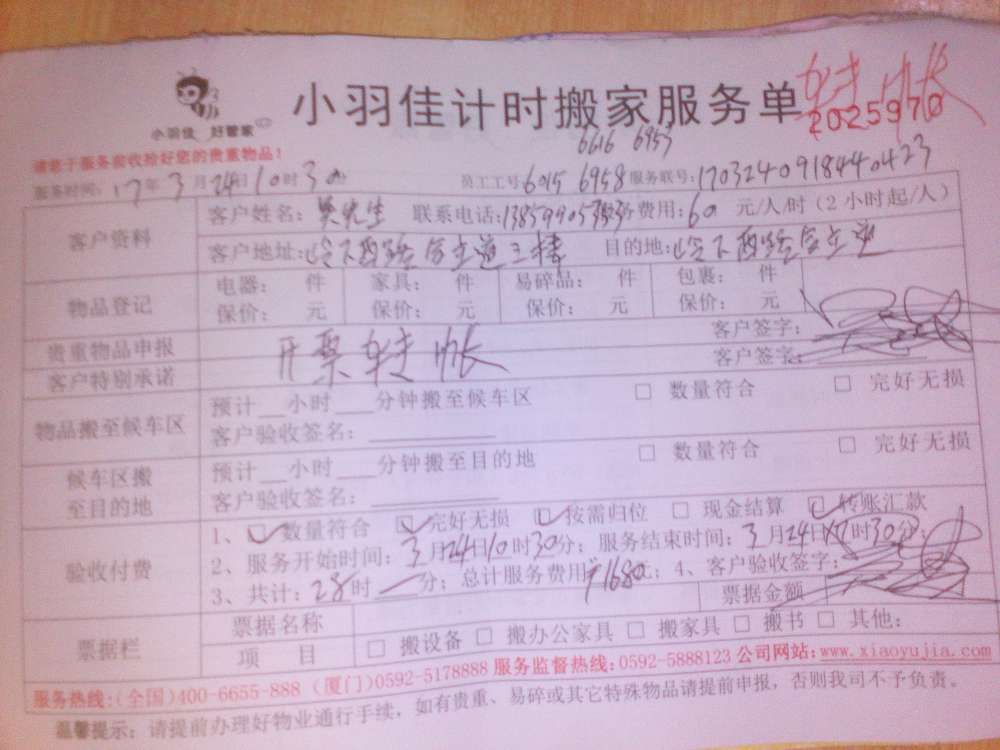 小羽佳 好管家
小羽佳计时搬家服务单
转帐
2025970
请您于服务前收拾好您的贵重物品!
6616 6953
服务时间:17年3月24日10时30 员工工号6015 6958服务联号:1703240918440423
客户资料
客户姓名:吴先生 联系电话: 费用:60 元/人/时(2小时起/人)
客户地址: 目的地:
物品登记
电器: 件 家具: 件 易碎品: 件 包裹: 件
保价: 元 保价: 元 保价: 元 保价: 元
贵重物品申报 客户签字:
客户特别承诺 开票转帐 客户签字:
物品搬至候车区
预计__小时___分钟搬至候车区 □ 数量符合 □ 完好无损
客户验收签名:
候车区搬至目的地
预计__小时___分钟搬至目的地 □ 数量符合 □ 完好无损
客户验收签名:
验收付费
1、☑数量符合 ☑完好无损 ☑按需归位 □ 现金结算 ☑转账汇款
2、服务开始时间:3月24日10时30分;服务结束时间:3月24日17时30分;
3、共计:28时一分;总计服务费用¥1680元;4、客户验收签字:
票据栏
票据名称 票据金额
项 目 □ 搬设备 □ 搬办公家具 □ 搬家具 □ 搬书 □ 其他:
服务热线:(全国)400-6655-888 (厦门)0592-5178888 服务监督热线:0592-5888123 公司网站:www.xiaoyujia.com
温馨提示:请提前办理好物业通行手续,如有贵重、易碎或其它特殊物品请提前申报,否则我司不予负责。